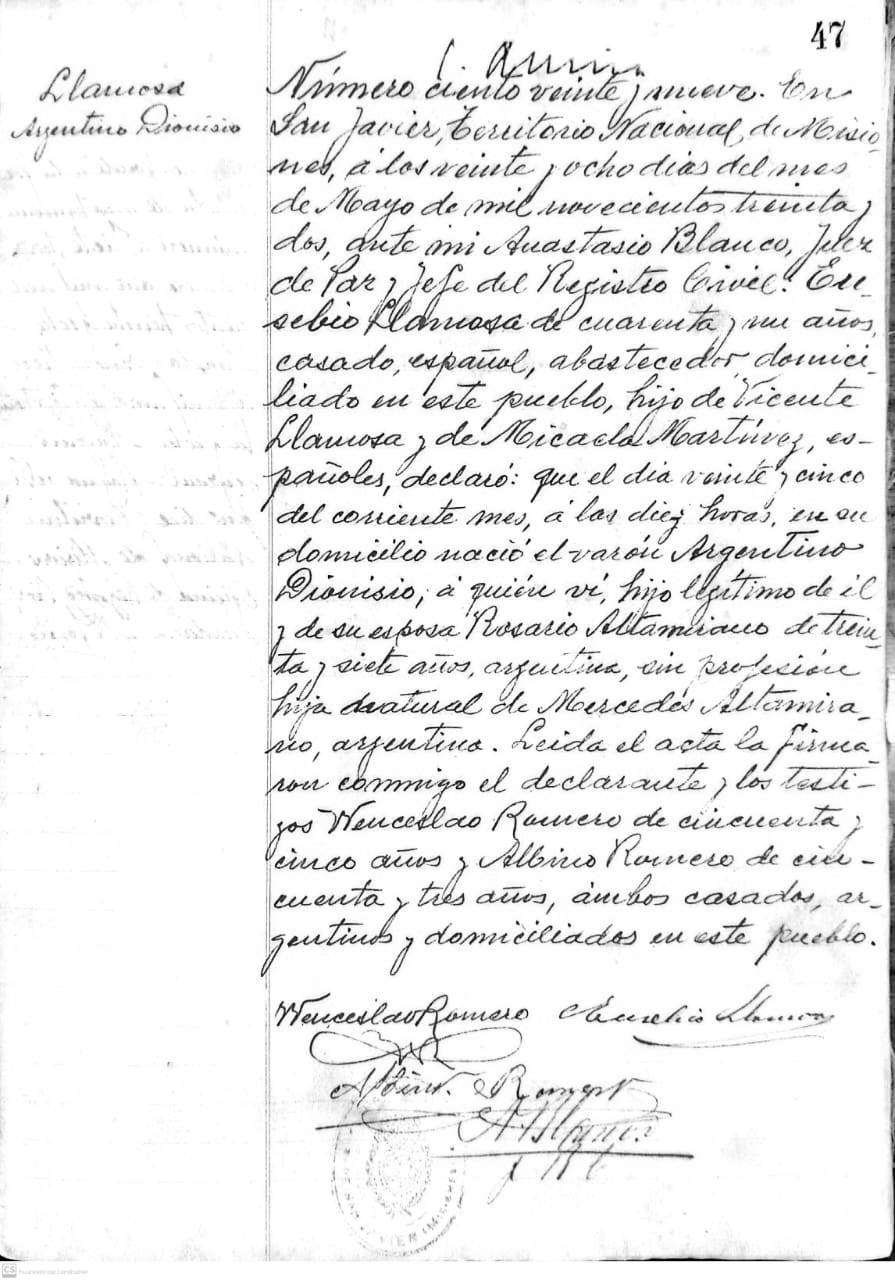 47
Llamosa
Argentino Dionisio
Número ciento veinte y nueve. En
San Javier, Territorio Nacional de Misio-
nes, á los veinte y ocho dias del mes
de Mayo de mil novecientos treinta y
dos, ante mi Anastasio Blanco, Juez
de Paz y Jefe del Registro Civil: Eu-
sebio Llamosa de cuarenta y un años,
casado, español, abastecedor, domici-
liado en este pueblo, hijo de Vicente
Llamosa y de Micaela Martínez, es-
pañoles, declaró: que el dia veinte y cinco
del corriente mes, á las diez horas, en su
domicilio nació el varón Argentino
Dionisio, á quién ví, hijo legítimo de él
y de su esposa Rosario Altamirano de trein-
ta y siete años, argentina, sin profesión
hija natural de Mercedes Altamira-
no, argentina. Leida el acta la firma-
ron conmigo el declarante y los testi-
gos Wenceslao Romero de cincuenta y
cinco años y Albino Romero de cin-
cuenta y tres años, ámbos casados, ar-
gentinos y domiciliados en este pueblo.
Wenceslao Romero Eusebio Llamosa
Albino Romero
A Blanco